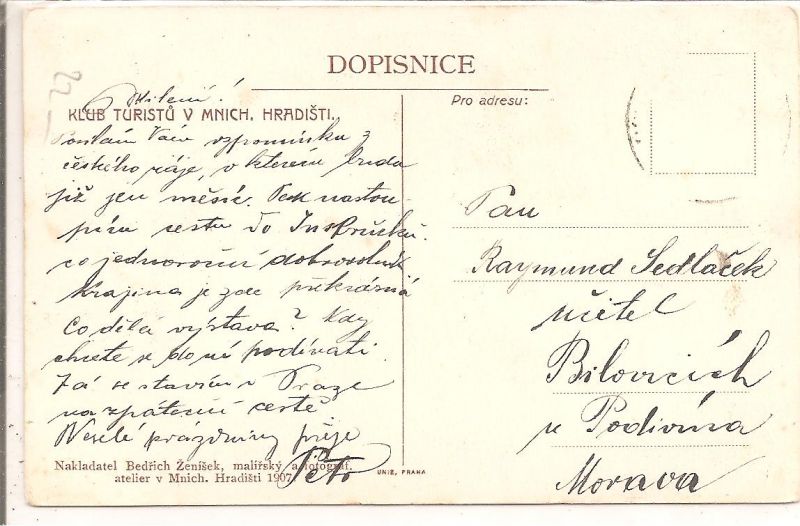 22
DOPISNICE
Milení!
KLUB TURISTŮ V MNICH. HRADIŠTI.
Posílám Vám vzpomínku z
českého ráje, v kterém budu
již jen měsíc. Pak nastou-
pím cestu do Insbrucku.
co jednoroční dobrovolník
Krajina je zde překrásná
Co dělá výstava? Kdy
chcete se do ní podívati.
Já se stavím v Praze
na zpáteční cestě
Veselé prázdniny přeje
Petr
Nakladatel Bedřich Ženíšek, malířský a fotograf.
atelier v Mnich. Hradišti 1907
UNIE, PRAHA
Pro adresu:
Pan
Raymund Sedlaček
učitel
Bílovicích
u Podivína
Morava